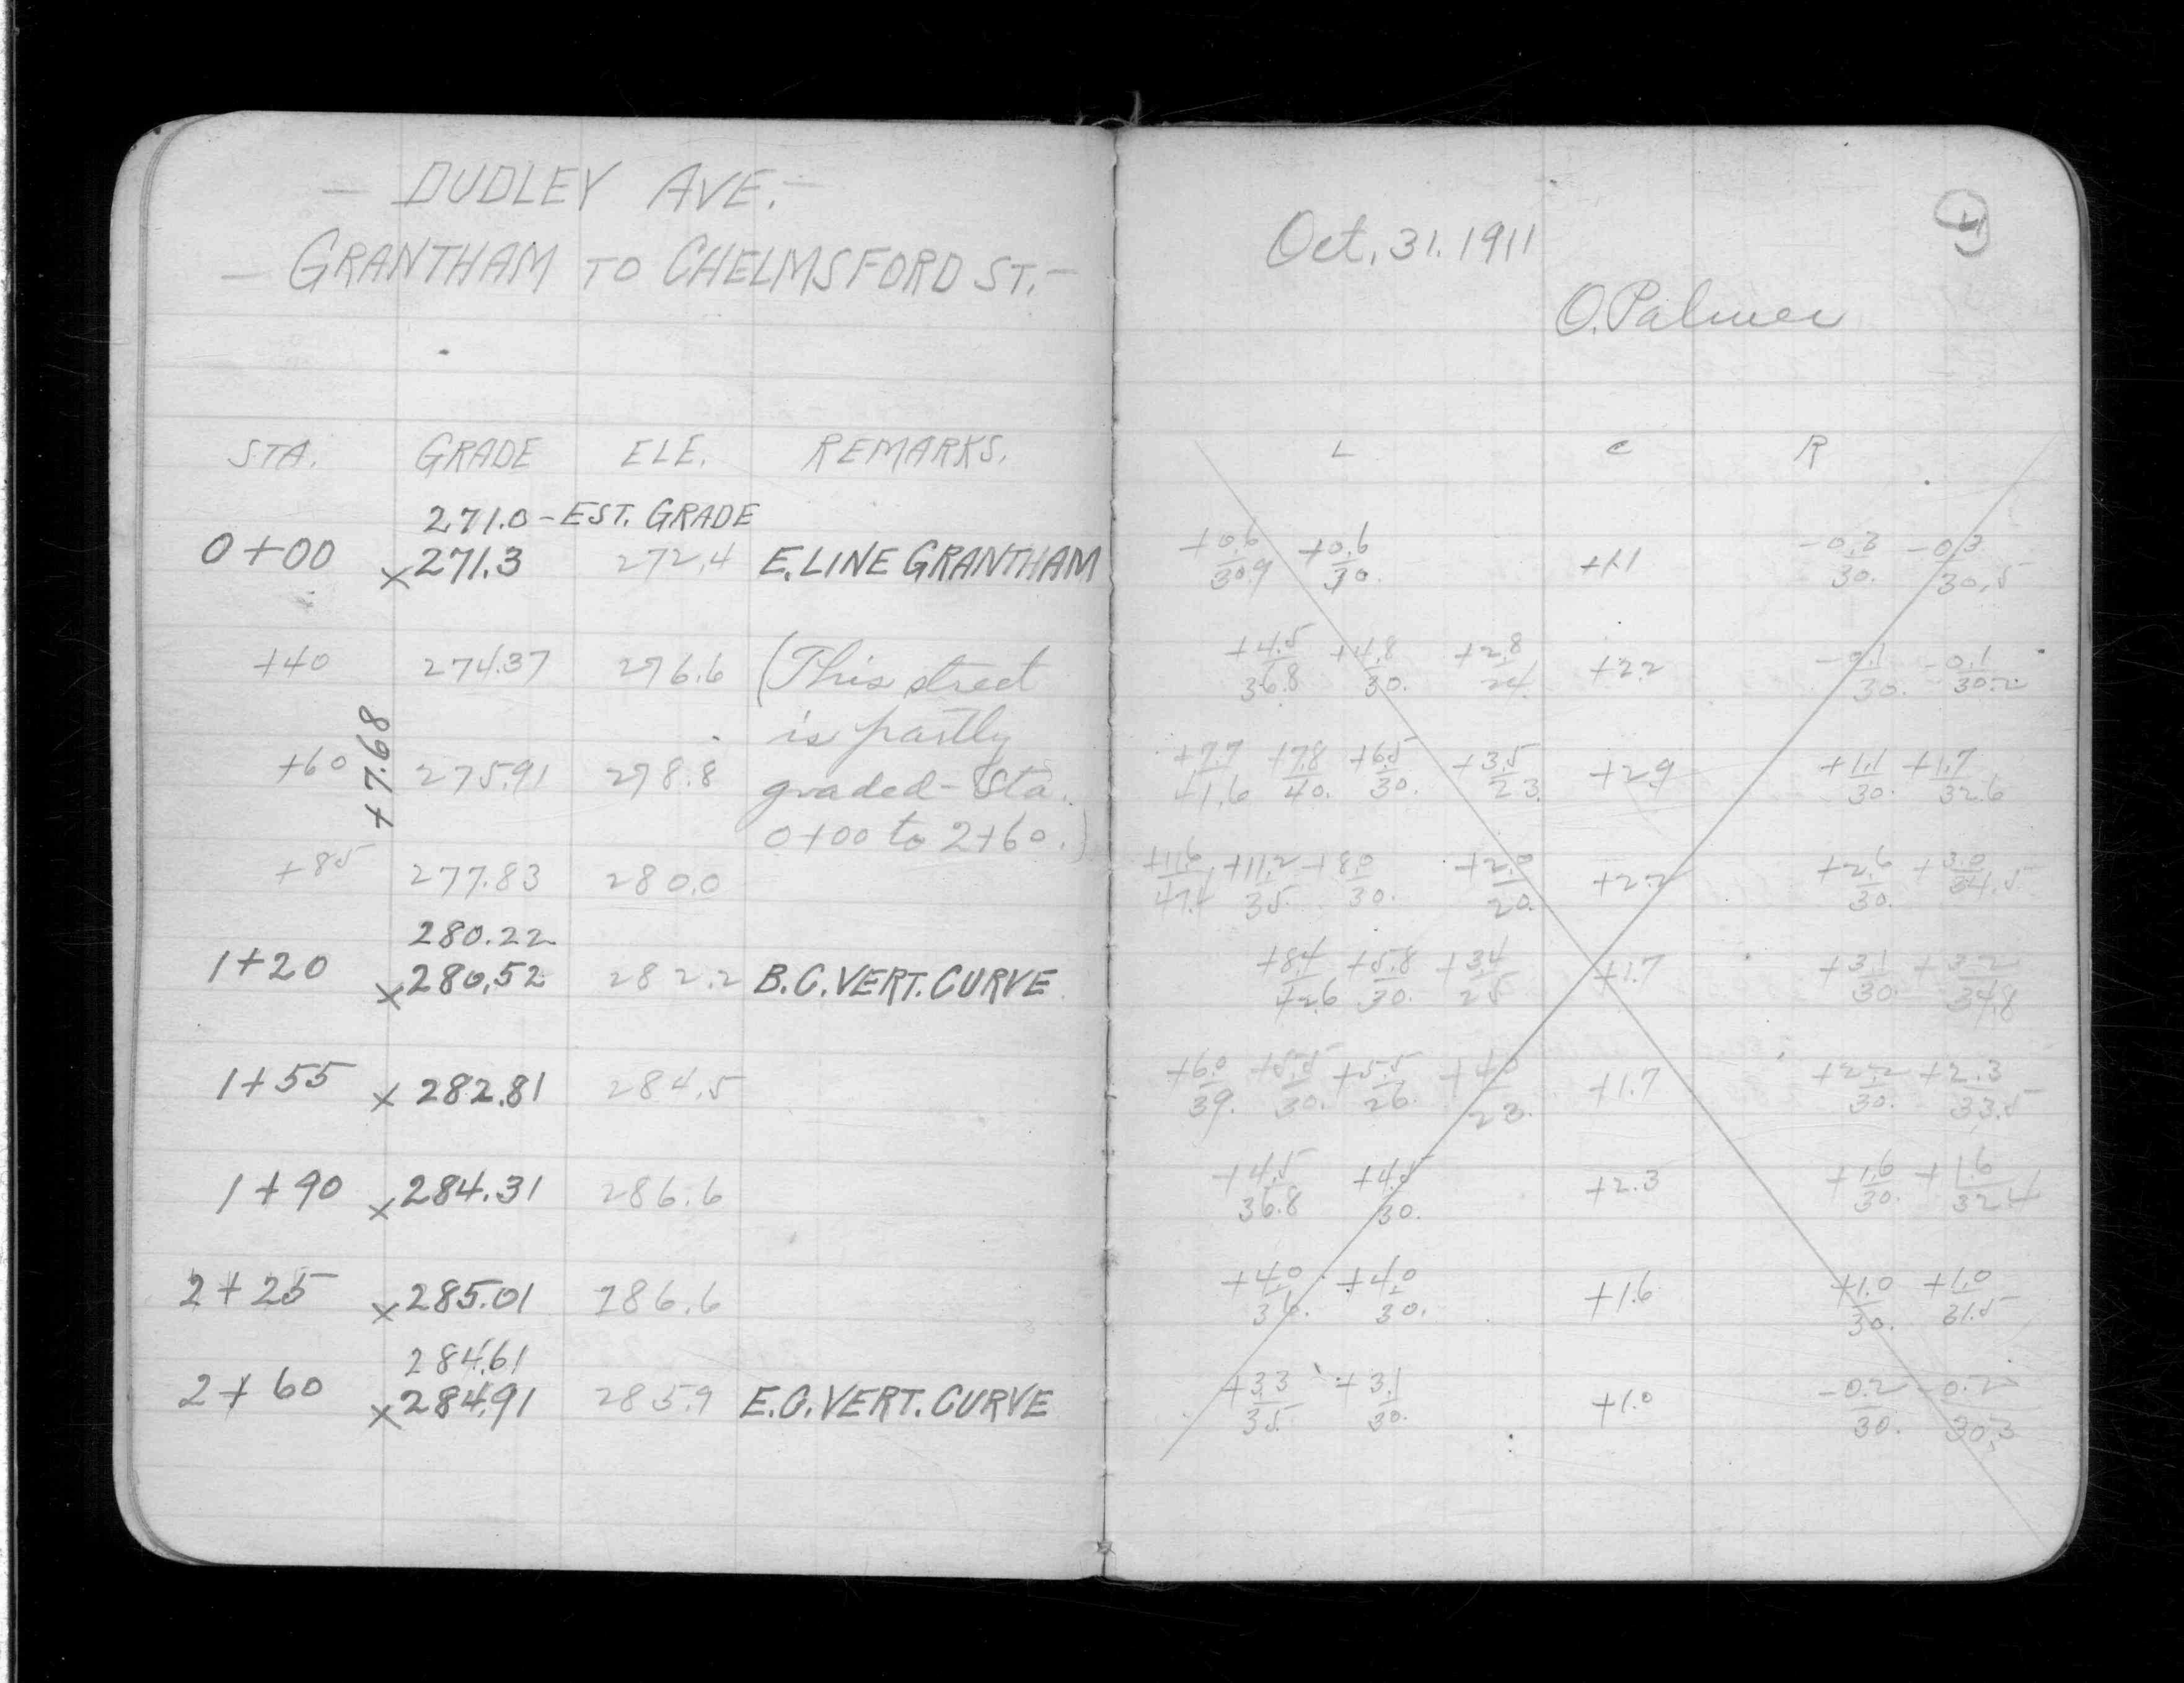 - DUDLEY AVE. -
- GRANTHAM TO CHELMSFORD ST. -
STA. GRADE ELE. REMARKS.
271.0 - EST. GRADE
0+00 x271.3 272.4 E. LINE GRANTHAM
+40 274.37 276.6 (This street
is partly
+7.68
+60 275.91 278.8 graded - Sta.
0+00 to 2+60.)
+85 277.83 280.0
280.22
1+20 x280.52 282.2 B.C. VERT. CURVE
1+55 x 282.81 284.5
1+90 x284.31 286.6
2+25 x285.01 286.6
284.61
2+60 x284.91 285.9 E.C. VERT. CURVE
Oct. 31. 1911
O. Palmer
L C R
+0.6/30.9 +0.6/30. +1.1 -0.3/30. -0.3/30.5
+4.5/36.8 +4.8/30. +2.8/24. +2.2 -0.1/30. -0.1/30.2
+7.7/41.6 +7.8/40. +6.5/30. +3.5/23. +2.9 +1.1/30. +1.7/32.6
+11.6/47.4 +11.2/35. +8.0/30. +2.0/20. +2.2 +2.6/30. +3.0/34.5
+8.4/42.6 +5.8/30. +3.4/25 +1.7 +3.1/30. +3.2/34.8
+6.0/39. +5.5/30. +5.5/26. +4.0/23. +1.7 +2.2/30. +2.3/33.5
+4.5/36.8 +4.5/30. +2.3 +1.6/30. +1.6/32.4
+4.0/36. +4.0/30. +1.6 +1.0/30. +1.0/31.5
+3.3/35. +3.1/30. +1.0 -0.2/30. -0.2/30.3